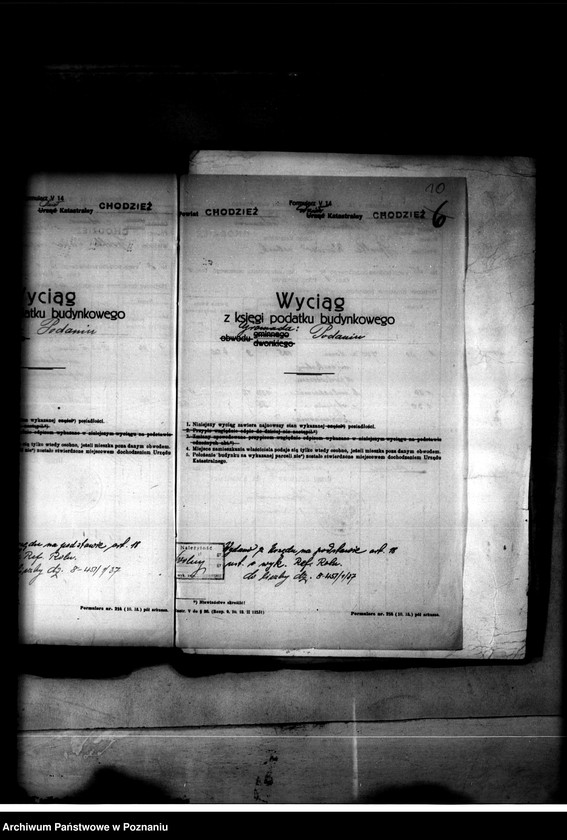 Formularz V 14
Urząd Katastralny CHODZIEŻ
Wyciąg
atku budynkowego
Podanin
en wykazanej części*) posiadłości.
się tylko wtedy osobno, jeżeli mieszka poza danym obwodem.
li nie*) zostało stwierdzone miejscowem dochodzeniem Urzędu
ędu na podstawie art. 18
Ref. Roln.
liczby dz. 8-457/1/37
Formularz nr. 214
10
Formularz V 14
Powiat CHODZIEŻ
Urząd Katastralny CHODZIEŻ
6
Wyciąg
z księgi podatku budynkowego
Gromada: Podanin
obwodu gminnego
dworskiego
1. Niniejszy wyciąg zawiera najnowszy stan wykazanej części*) posiadłości.
4. Miejsce zamieszkania właściciela podaje się tylko wtedy osobno, jeżeli mieszka poza danym obwodem.
5. Położenie budynku na wykazanej parceli nie*) zostało stwierdzone miejscowem dochodzeniem Urzędu
Katastralnego.
Należytość
Wydano z Urzędu na podstawie art. 18
ust. o wyk. Ref. Roln.
do liczby dz. 8-457/1/37
*) Niewłaściwe skreślić!
Formularz nr. 214
Archiwum Państwowe w Poznaniu